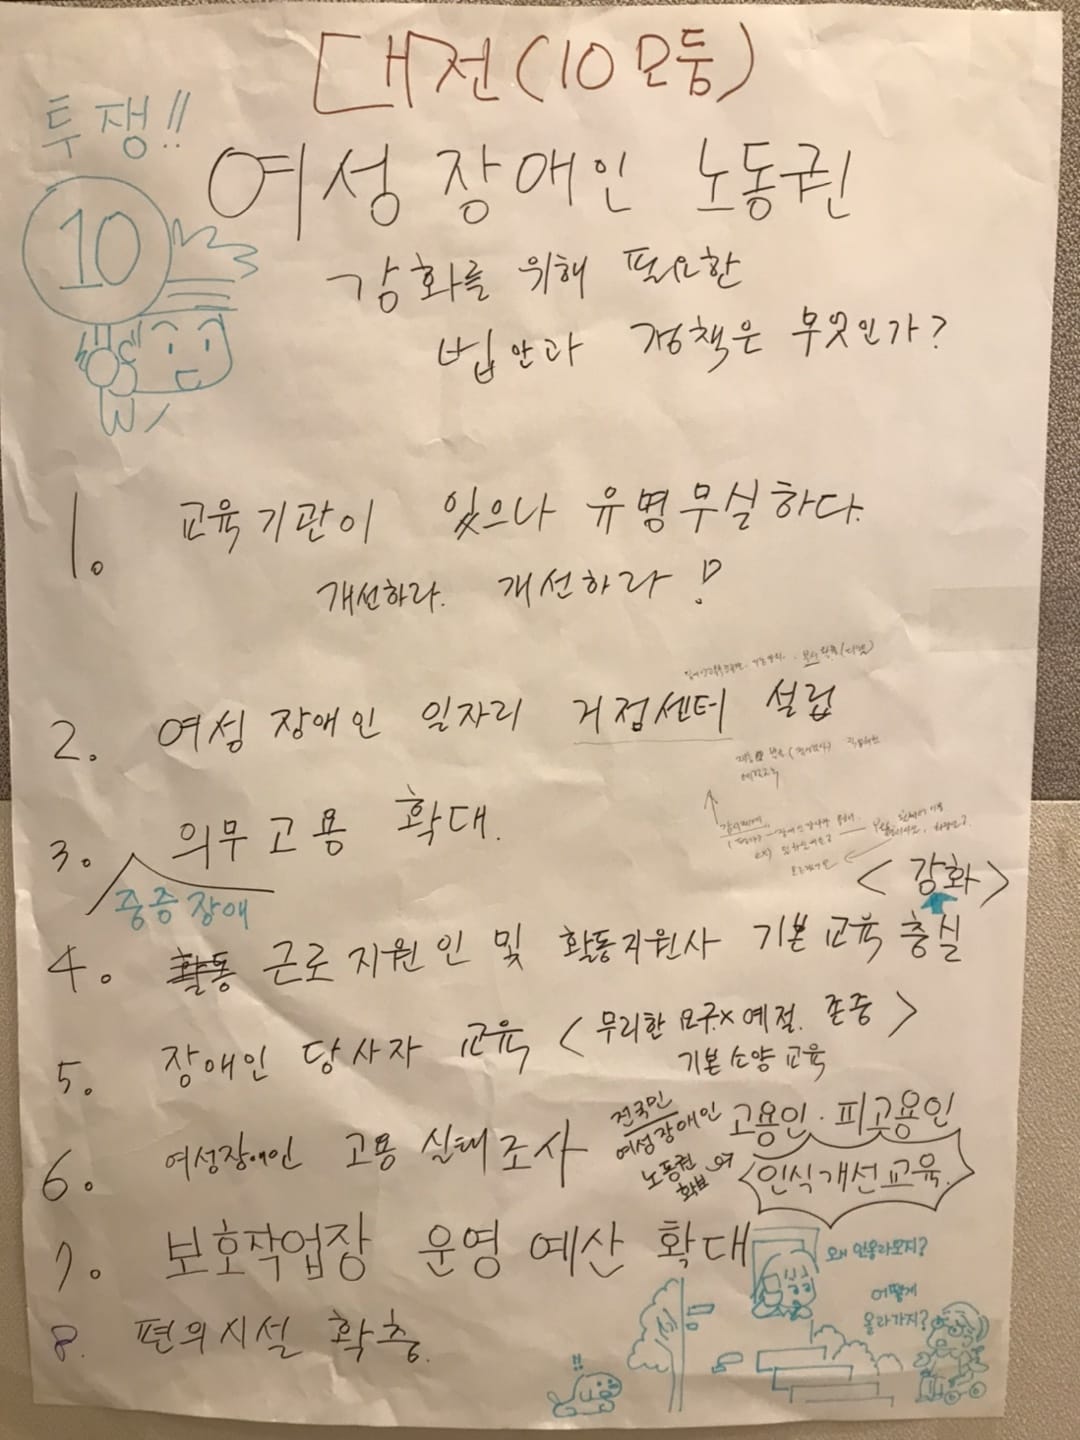 대전(10모둠)
투쟁!!
10
여성 장애인 노동권
강화를 위해 필요한
법안과 정책은 무엇인가?
1. 교육기관이 있으나 유명무실하다.
개선하라. 개선하라!
2. 여성 장애인 일자리 거점센터 설립
3. 의무고용 확대.
중증장애
<강화>
4. 활동 근로지원인 및 활동지원사 기본교육 충실
5. 장애인 당사자 교육 <무리한 요구x 예절. 존중>
기본소양교육
6. 여성장애인 고용 실태조사
전국민
여성장애인
노동권
확보
고용인·피고용인
인식개선교육.
7. 보호작업장 운영 예산 확대
8. 편의시설 확충.
왜 안올라오지?
어떻게
올라가지?
!!